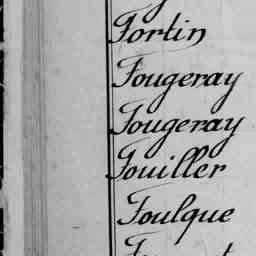 Fortin
Fougeray
Fougeray
Fouiller
Foulque